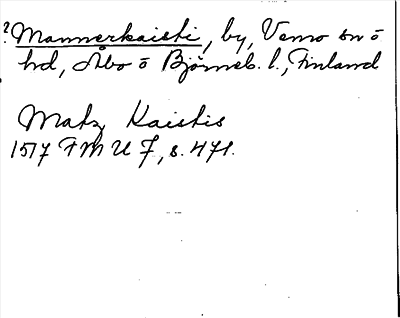 ? Mannerkaisti, by, Vemo sn o
hd, Åbo o Björneb. l., Finland
Matz Kaistis
1517 FMU 7, s. 471.